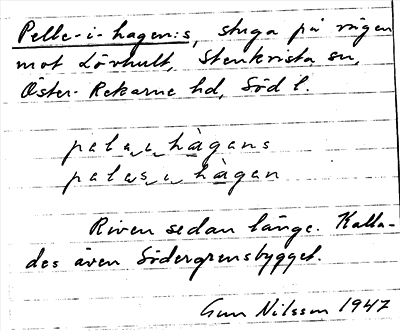 Pelle-i-hagen:s, stuga på vägen
mot Lövhult, Stenkvista sn,
Öster-Rekarne hd, Söd l.
pala i hàgans
palas i hàgan
Riven sedan länge. Kalla-
des även Södergrensbygget.
Gun Nilsson 1947